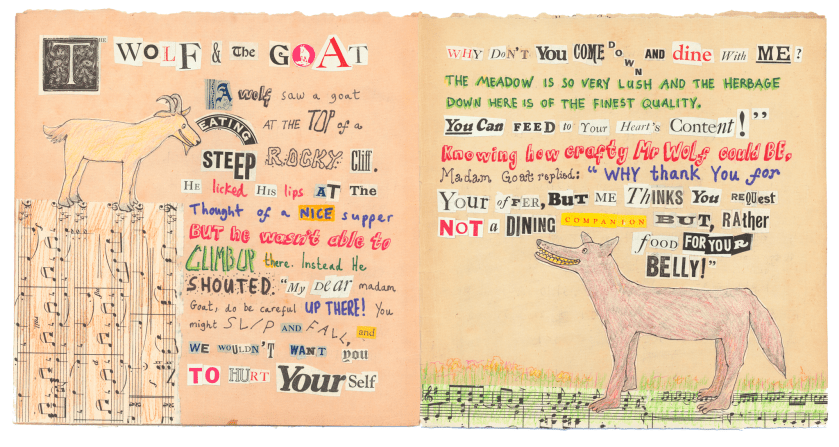 THE WOLF & the GOAT
A wolf saw a goat
EATING AT THE TOP of a
STEEP ROCKY Cliff.
HE licked His lips AT The
Thought of a NICE supper
BUT he wasn't able to
CLIMB UP there. Instead He
SHOUTED: "My Dear madam
Goat, do be careful UP THERE! You
might SLIP AND FALL, and
WE WOULDN'T WANT you
TO HURT YourSelf
WHY DoN'T You COME DOWN AND dine With ME?
THE MEADOW IS SO VERY LUSH AND THE HERBAGE
DOWN HERE IS OF THE FINEST QUALITY.
You Can FEED to Your Heart's Content!"
Knowing how crafty Mr Wolf could BE,
Madam Goat replied: "WHY thank You for
Your ofFER, BUT ME THinkS You REQuest
NOT a DINING COMPANION BUT, RAther
food FOR YOUR
BELLY!"